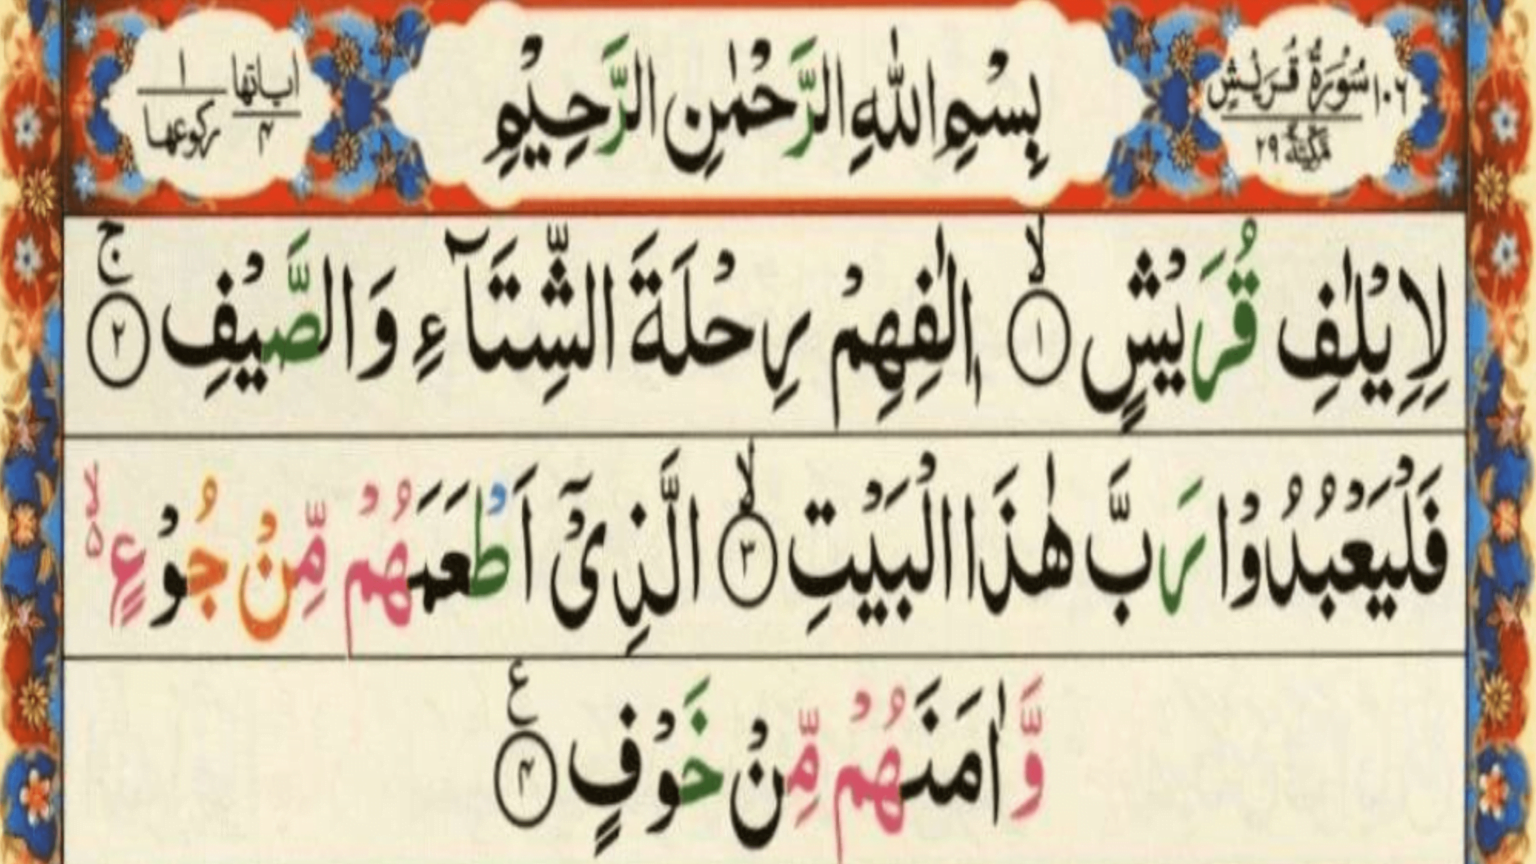 ١٠٦ سُوْرَةُ قُرَيْشٍ
مَكِّيَّةٌ ٢٩
بِسْمِ اللّٰهِ الرَّحْمٰنِ الرَّحِيْمِ
اٰیاتها ۴
رکوعها ١
لِاِيْلٰفِ قُرَيْشٍ ۙ﴿١﴾ اٖلٰفِهِمْ رِحْلَةَ الشِّتَآءِ وَالصَّيْفِ ۚ﴿٢﴾
فَلْيَعْبُدُوْا رَبَّ هٰذَا الْبَيْتِ ۙ﴿٣﴾ الَّذِيْٓ اَطْعَمَهُمْ مِّنْ جُوْعٍ ۙ۵
وَّاٰمَنَهُمْ مِّنْ خَوْفٍ ﴿۴﴾ ع